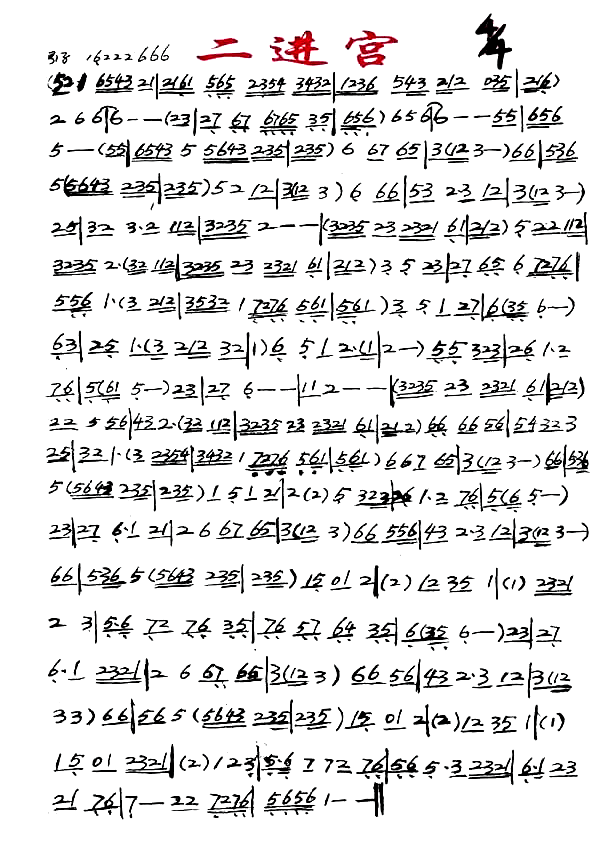 二进宫 4/4
16222666
(521 6543 21|2161 565 2354 3432|1236 543 212 035|216)
2 6 6 6--(23|27 67 6765 35|656) 6 5 6 6---55|656
5--(55|6543 5 5643 235|235) 6 67 65|3(12 3-)66|536
5(5643 235|235) 5 2 12|3(12 3) 6 66|53 2·3 12|3(12 3-)
25|32 3·2 112|3235 2---|(3235 23 2321 61|212) 5 22 112|
3235 2·(32 112|3235 23 2321 61|212) 3 5 23|27 65 6 7276|
556 1·(3 212|3532 1 7276 561|561) 3 5 1 27|6(35 6-)
63|25 1·(3 212 32|1) 6 5 1 2·(1|2-) 55 323|26 1·2
76|5(61 5-)23|27 6---|11 2---|(3235 23 2321 61|212)
22 5 56|43 2·(32 112|3235 23 2321 61|212) 66 66 56|54 32 3
25|32 1·(3 2354|3432 1 7276 561|561) 6 6 7 65|3(12 3-)66|536
5(5643 235|235) 1 5 1 21|2(2) 5 323 26 1·2 76|5(6 5-)
23|27 6·1 21|2 6 67 65|3(12 3) 66 556|43 2·3 12|3(12 3-)
66|536 5(5643 235|235) 15 01 2|(2) 12 35 1|(1) 2321
2 3|5·6 72 76 35|76 57 64 35|6(35 6-)23|27
6·1 2321|2 6 67 65|3(12 3) 66 56|43 2·3 12|3(12
3 3) 66|56 5(5643 235|235) 15 01 2|(2) 12 35 1|(1)
1 5 01 2321|(2) 1 2 3|5·6 7 72 76|56 5·3 2321|6·1 23
21 76|7- 22 7276|5656 1--‖